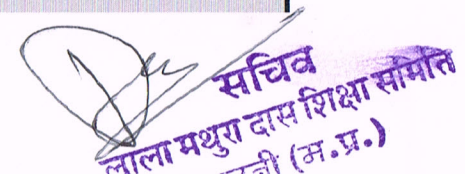 सचिव
लाला मथुरा दास शिक्षा समिति
(म.प्र.)